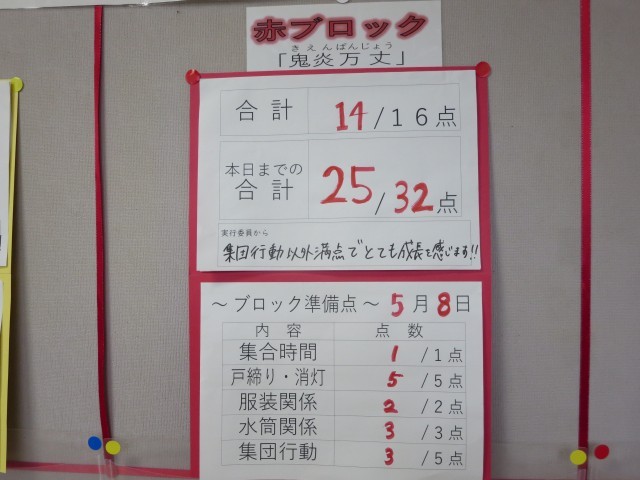 赤ブロック
きえんばんじょう
「鬼炎万丈」
合計 14/16点
本日までの合計 25/32点
実行委員から
集団行動以外満点でとても成長を感じます!!
～ブロック準備点～ 5月8日
内容 点数
集合時間 1/1点
戸締り・消灯 5/5点
服装関係 2/2点
水筒関係 3/3点
集団行動 3/5点